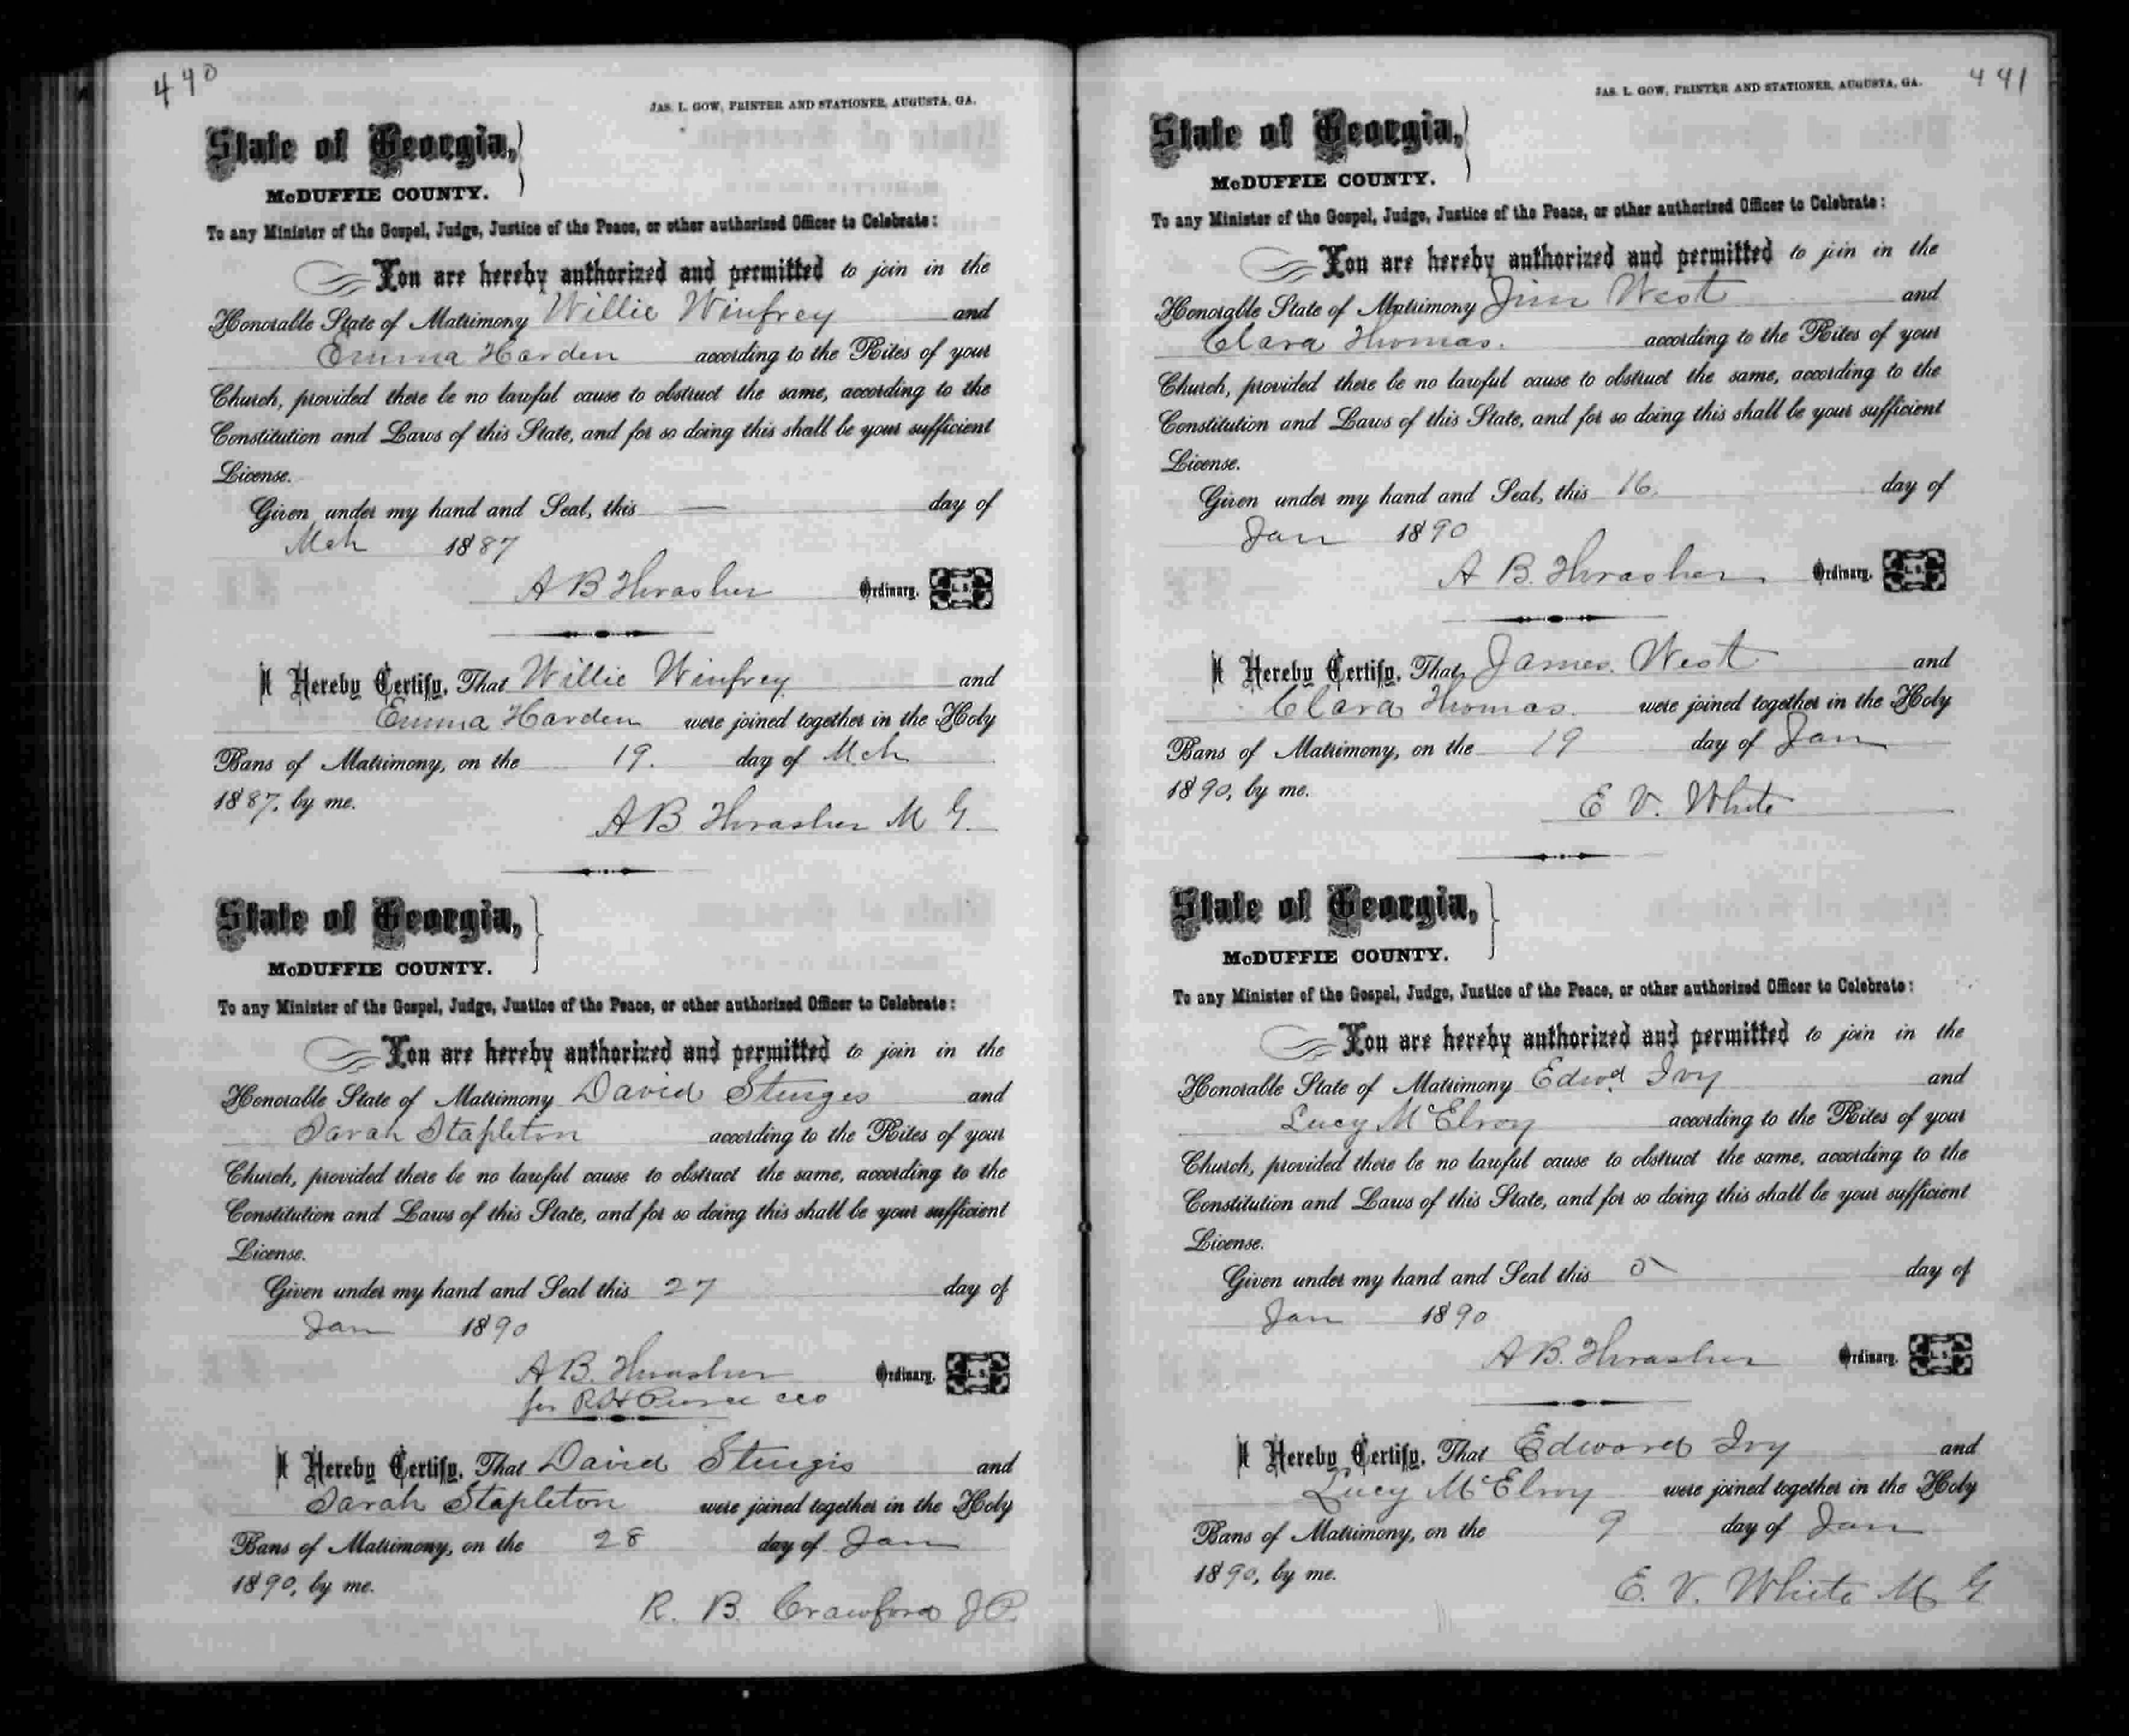 440
JAS. L. GOW, PRINTER AND STATIONER, AUGUSTA, GA.
State of Georgia,
McDUFFIE COUNTY.
To any Minister of the Gospel, Judge, Justice of the Peace, or other authorized Officer to Celebrate:
You are hereby authorized and permitted to join in the
Honorable State of Matrimony Willie Winfrey and
Emma Harden according to the Rites of your
Church, provided there be no lawful cause to obstruct the same, according to the
Constitution and Laws of this State, and for so doing this shall be your sufficient
License.
Given under my hand and Seal, this — day of
Mch 1887
A B Thrasher Ordinary. L.S.
I Hereby Certify, That Willie Winfrey and
Emma Harden were joined together in the Holy
Bans of Matrimony, on the 19. day of Mch
1887, by me.
A B Thrasher M G.
State of Georgia,
McDUFFIE COUNTY.
To any Minister of the Gospel, Judge, Justice of the Peace, or other authorized Officer to Celebrate:
You are hereby authorized and permitted to join in the
Honorable State of Matrimony David Sturges and
Sarah Stapleton according to the Rites of your
Church, provided there be no lawful cause to obstruct the same, according to the
Constitution and Laws of this State, and for so doing this shall be your sufficient
License.
Given under my hand and Seal this 27 day of
Jan 1890
A B. Thrasher Ordinary. L.S.
for R H Pearce
I Hereby Certify, That David Sturgis and
Sarah Stapleton were joined together in the Holy
Bans of Matrimony, on the 28 day of Jan
1890, by me.
R. B. Crawford J P.
441
JAS. L. GOW, PRINTER AND STATIONER, AUGUSTA, GA.
State of Georgia,
McDUFFIE COUNTY.
To any Minister of the Gospel, Judge, Justice of the Peace, or other authorized Officer to Celebrate:
You are hereby authorized and permitted to join in the
Honorable State of Matrimony Jim West and
Clara Thomas. according to the Rites of your
Church, provided there be no lawful cause to obstruct the same, according to the
Constitution and Laws of this State, and for so doing this shall be your sufficient
License.
Given under my hand and Seal, this 16. day of
Jan 1890
A B. Thrasher Ordinary. L.S.
I Hereby Certify, That James. West and
Clara Thomas. were joined together in the Holy
Bans of Matrimony, on the 19 day of Jan
1890, by me.
E V. White
State of Georgia,
McDUFFIE COUNTY.
To any Minister of the Gospel, Judge, Justice of the Peace, or other authorized Officer to Celebrate:
You are hereby authorized and permitted to join in the
Honorable State of Matrimony Edwd Ivy and
Lucy McElroy according to the Rites of your
Church, provided there be no lawful cause to obstruct the same, according to the
Constitution and Laws of this State, and for so doing this shall be your sufficient
License.
Given under my hand and Seal this 5 day of
Jan 1890
A B. Thrasher Ordinary. L.S.
I Hereby Certify, That Edward Ivy and
Lucy McElroy were joined together in the Holy
Bans of Matrimony, on the 9 day of Jan
1890, by me.
E. V. White M G